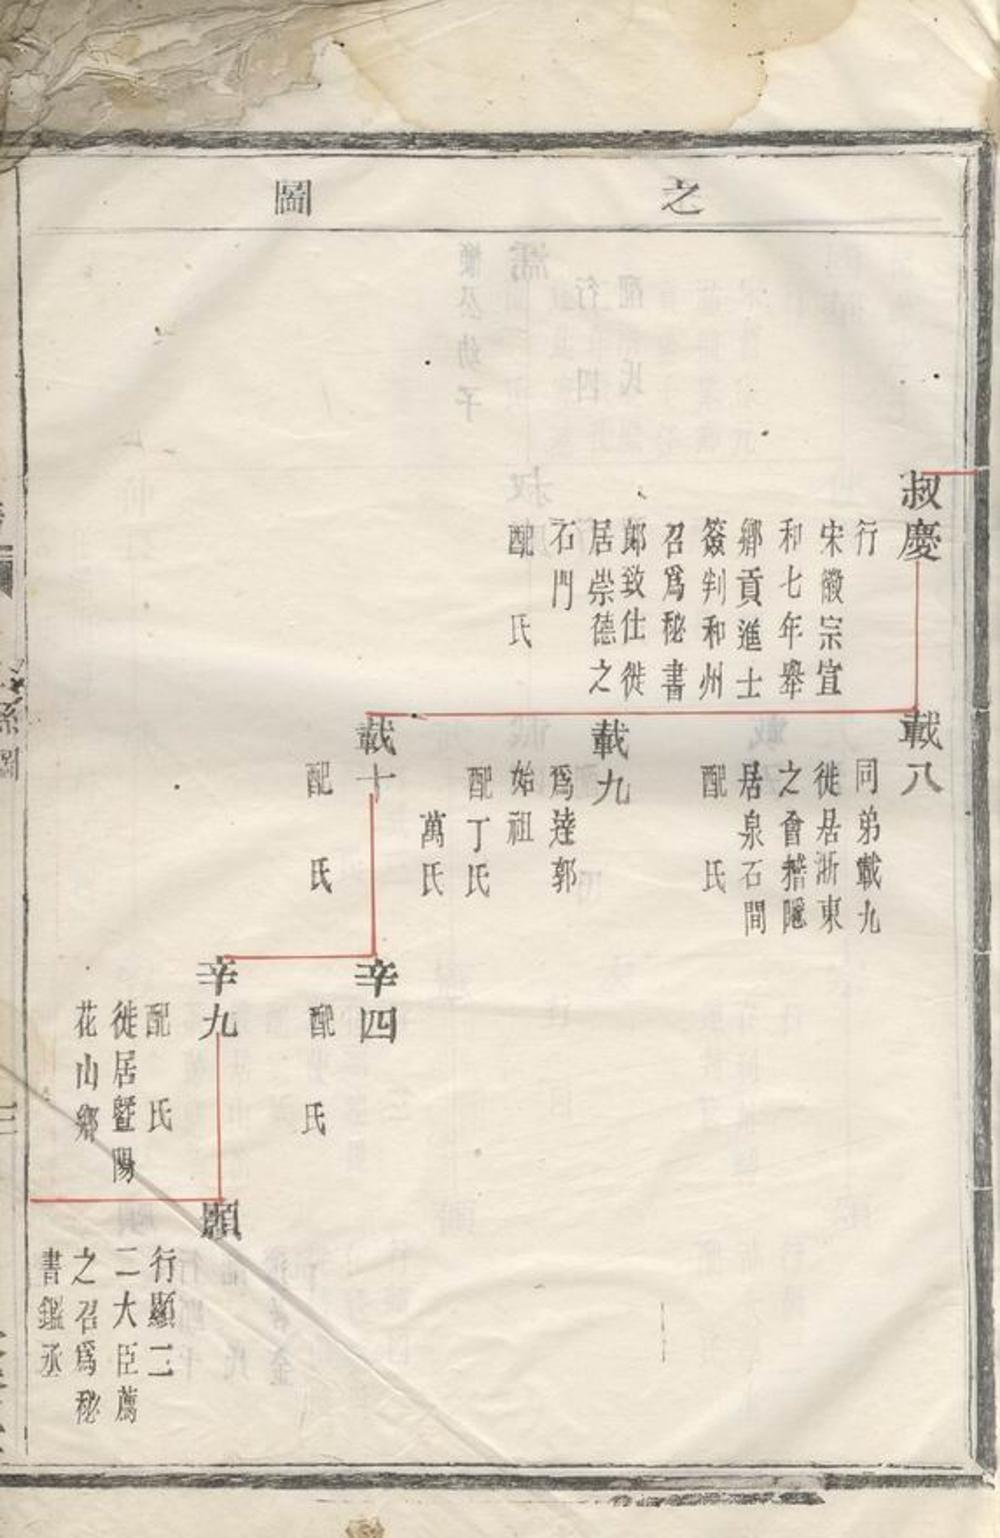 之圖
叔慶
行
宋徽宗宣
和七年舉
鄉貢進士
簽判和州
召爲秘書
郎致仕徙
居崇德之
石門
配 氏
載八
同弟載九
徙居浙東
之會稽隱
居泉石間
配 氏
載九
爲逹郭
始祖
配丁氏
萬氏
載十
配 氏
辛四
配 氏
辛九
配 氏
徙居暨陽
花山鄉
顯
行顯二
二大臣薦
之召爲秘
書鑑丞